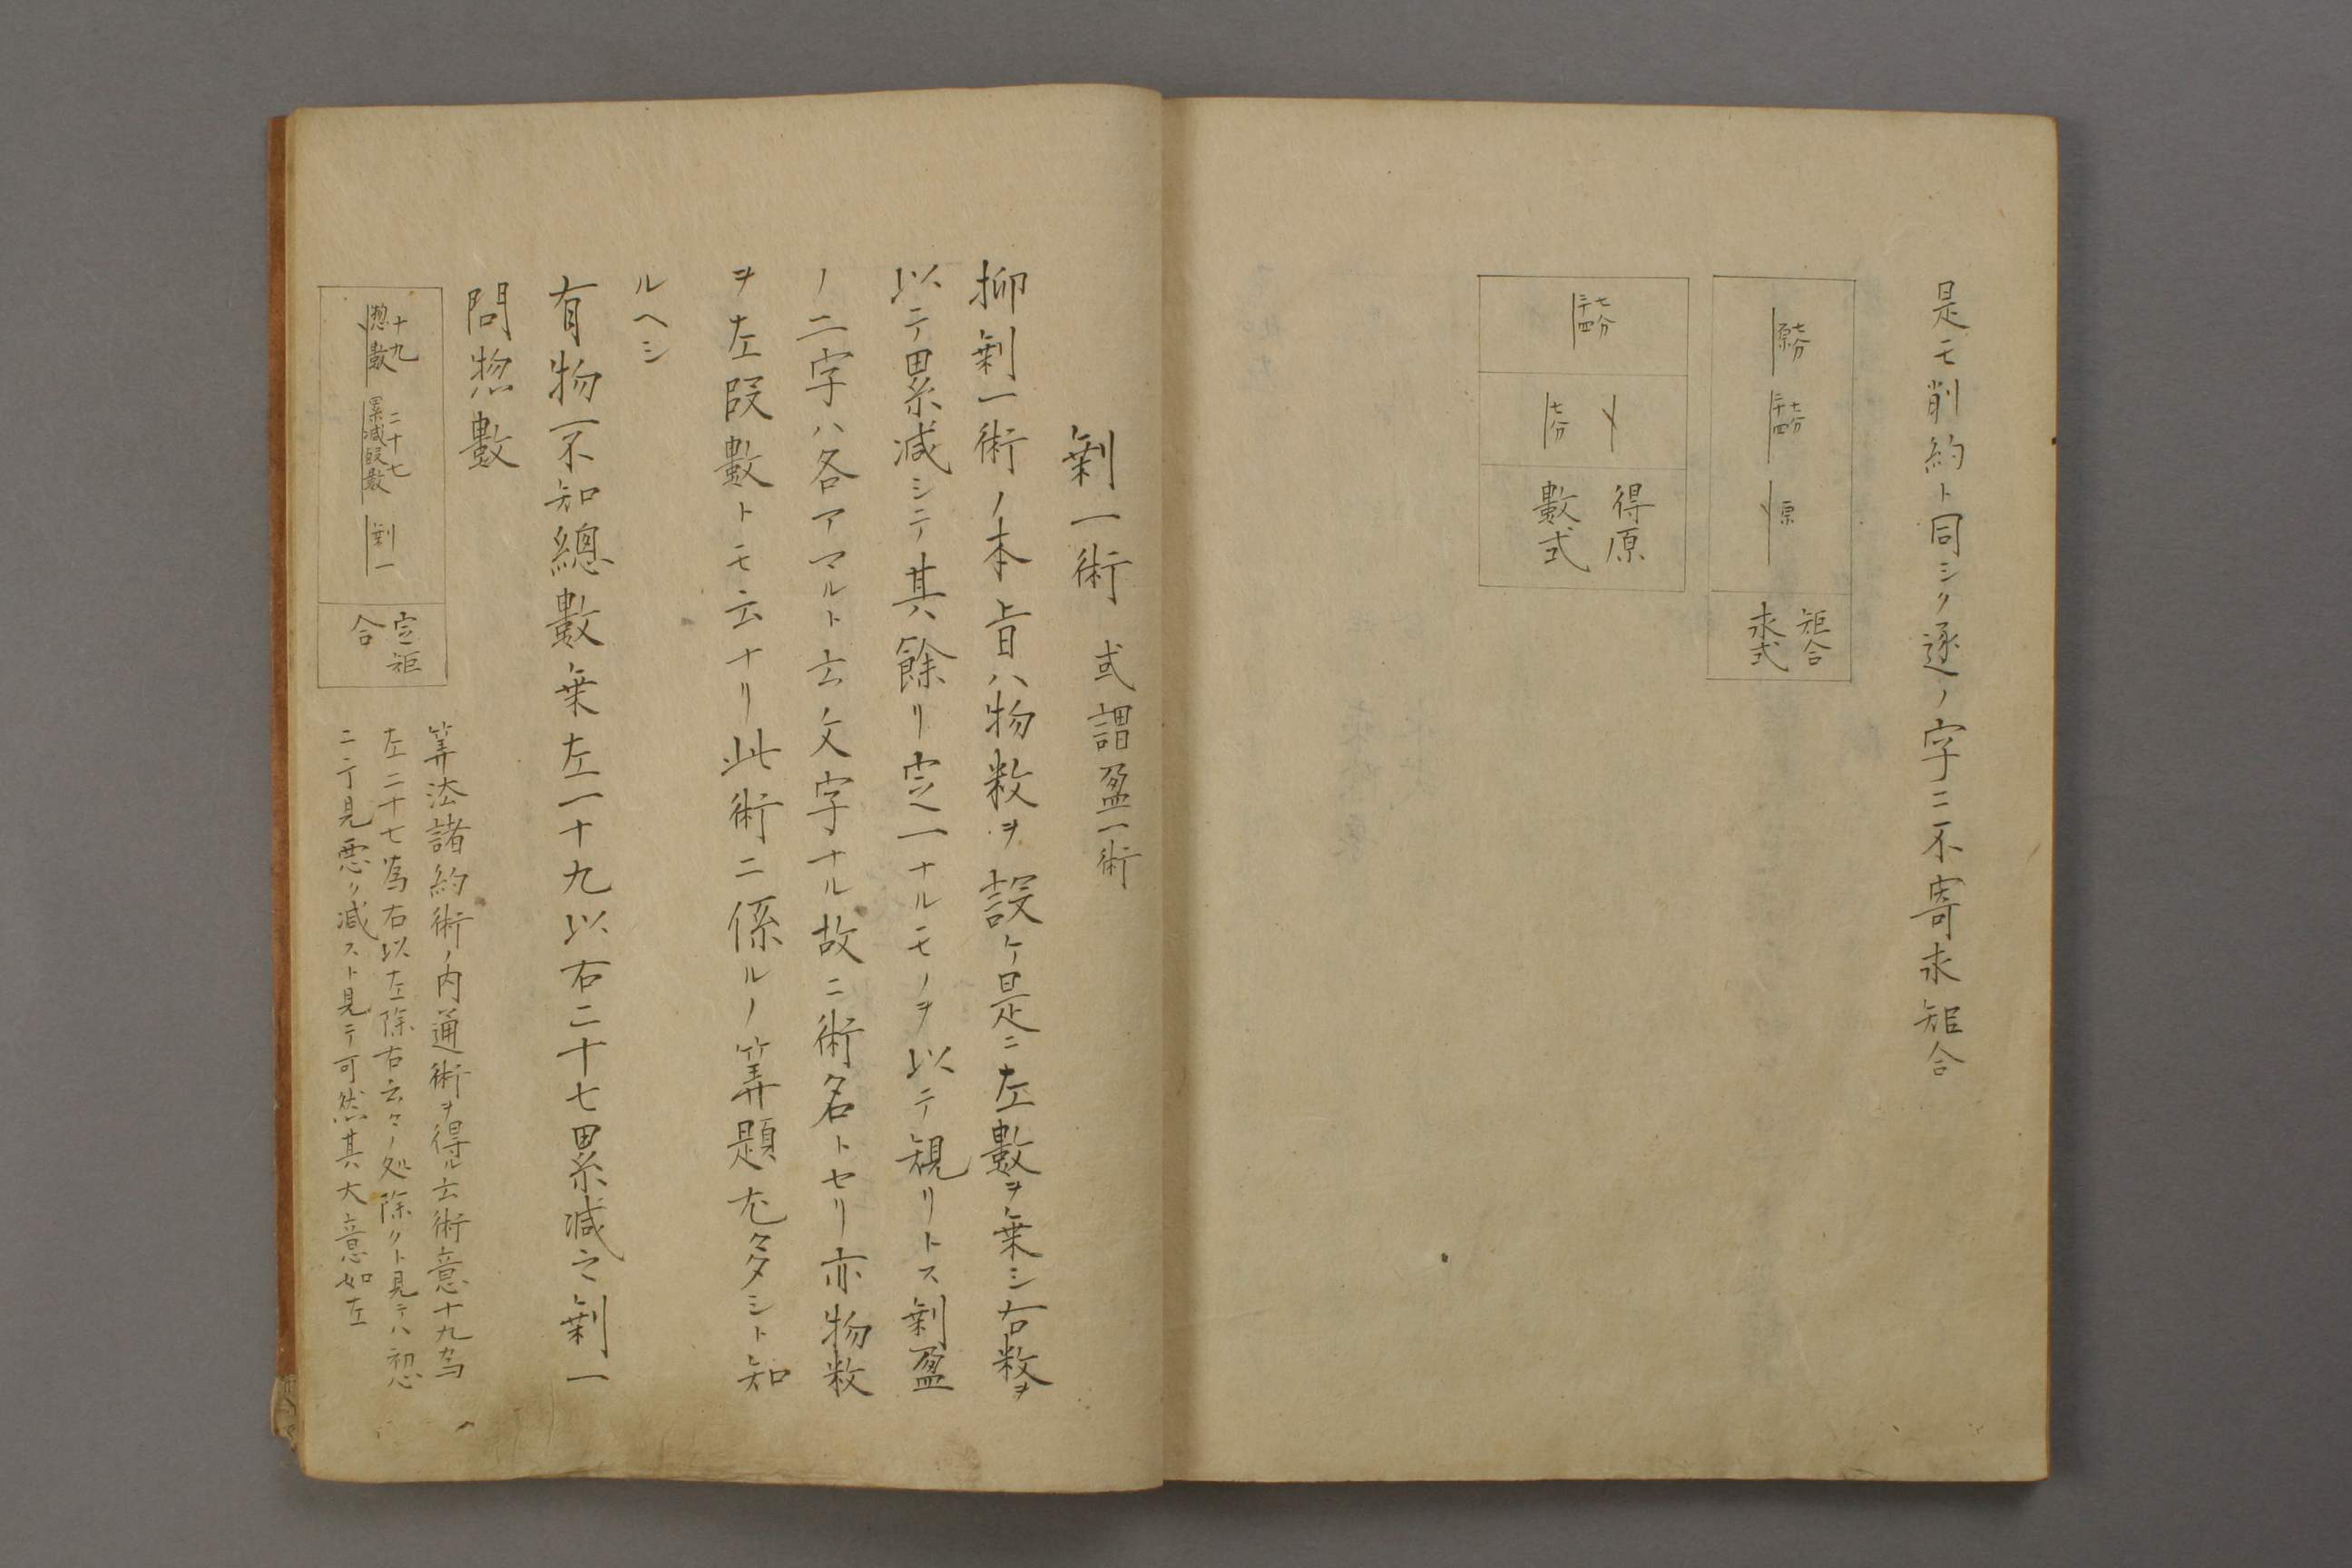 是モ削約ト同シク逐ノ字ニ不寄求矩合
矩合
求式
得原
數式
剰一術　或謂盈一術
抑剰一術ノ本旨ハ物数ヲ設ケ是ニ左數ヲ乗シ右数ヲ
以テ累减シテ其餘リ定一ナルモノヲ以テ規リトス剰盈
ノ二字ハ各アマルト云文字ナル故ニ術名トセリ亦物数
ヲ左段數トモ云ナリ此術ニ係ルノ筭題尤多シト知
ルヘシ
有物不知總數乗左一十九以右二十七累减之剰一
問惣數
十九
惣數
二十七
累减段數
剰一
定矩
合
筭法諸約術ノ内通術ヲ得ル云術意十九為
左二十七為右以左除右云々ノ処除クト見テハ初心
ニテ見悪ク减スト見テ可然其大意如左